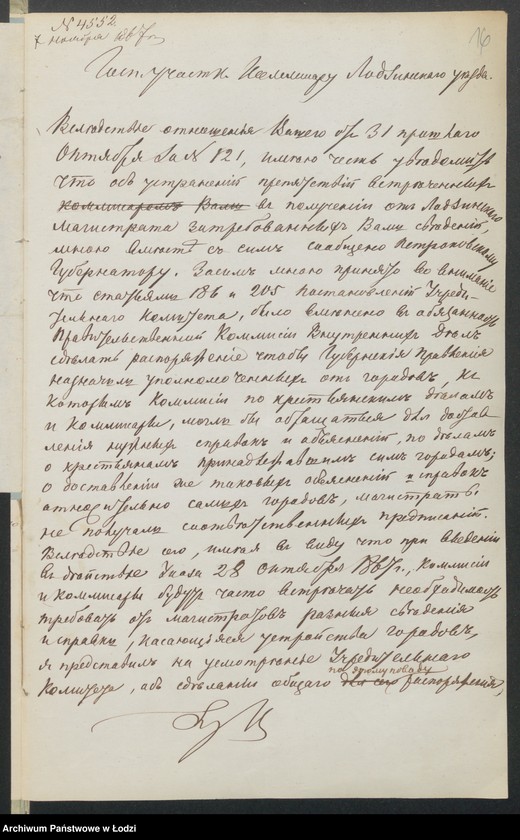 № 4552
7 ноября 1867 г.
16
Госп. участк. Коммисару Лодзинскаго уѣзда.
Вслѣдствіе отношенія Вашего отъ 31 прошлаго
Октября за № 121, имѣю честь увѣдомить
что объ устраненіи препятствій встрѣченныхъ
Коммисаромъ Вами въ полученіи отъ Лодзинскаго
Магистрата затребованныхъ Вами свѣденій,
мною вмѣстѣ съ симъ сообщено Петроковскому
Губернатору. Засимъ мною принято во вниманіе
что статьями 186 и 205 постановленій Учреди-
тельнаго Комитета, было вмѣнено въ обязанность
Правительственной Коммисіи Внутреннихъ Дѣлъ
сдѣлать распоряженіе чтобы Губернскія Правленія
назначили уполномоченныхъ отъ городовъ, къ
которымъ Коммисіи по крестьянскимъ дѣламъ
и Коммисары, могли бы обращаться для достав
ленія нужныхъ справокъ и объясненій, по дѣламъ
о крестьянахъ принадлежавшихъ симъ городамъ;
о доставленіи же таковыхъ объясненій и справокъ
относительно самыхъ городовъ, магистраты
не получали соотвѣтственныхъ предписаній.
Вслѣдствіе сего, имѣя въ виду что при введеніи
въ дѣйствіе Указа 28 Октября 186 г., Коммисіи
и Коммисары будутъ часто встрѣчать необходимость
требовать отъ магистратовъ разныя свѣденія
и справки, касающіяся устройства городовъ,
я представилъ на усмотрѣніе Учредительнаго
по этому поводу
Комитета, объ сдѣланіи общаго для сего распоряженія,
Archiwum Państwowe w Łodzi